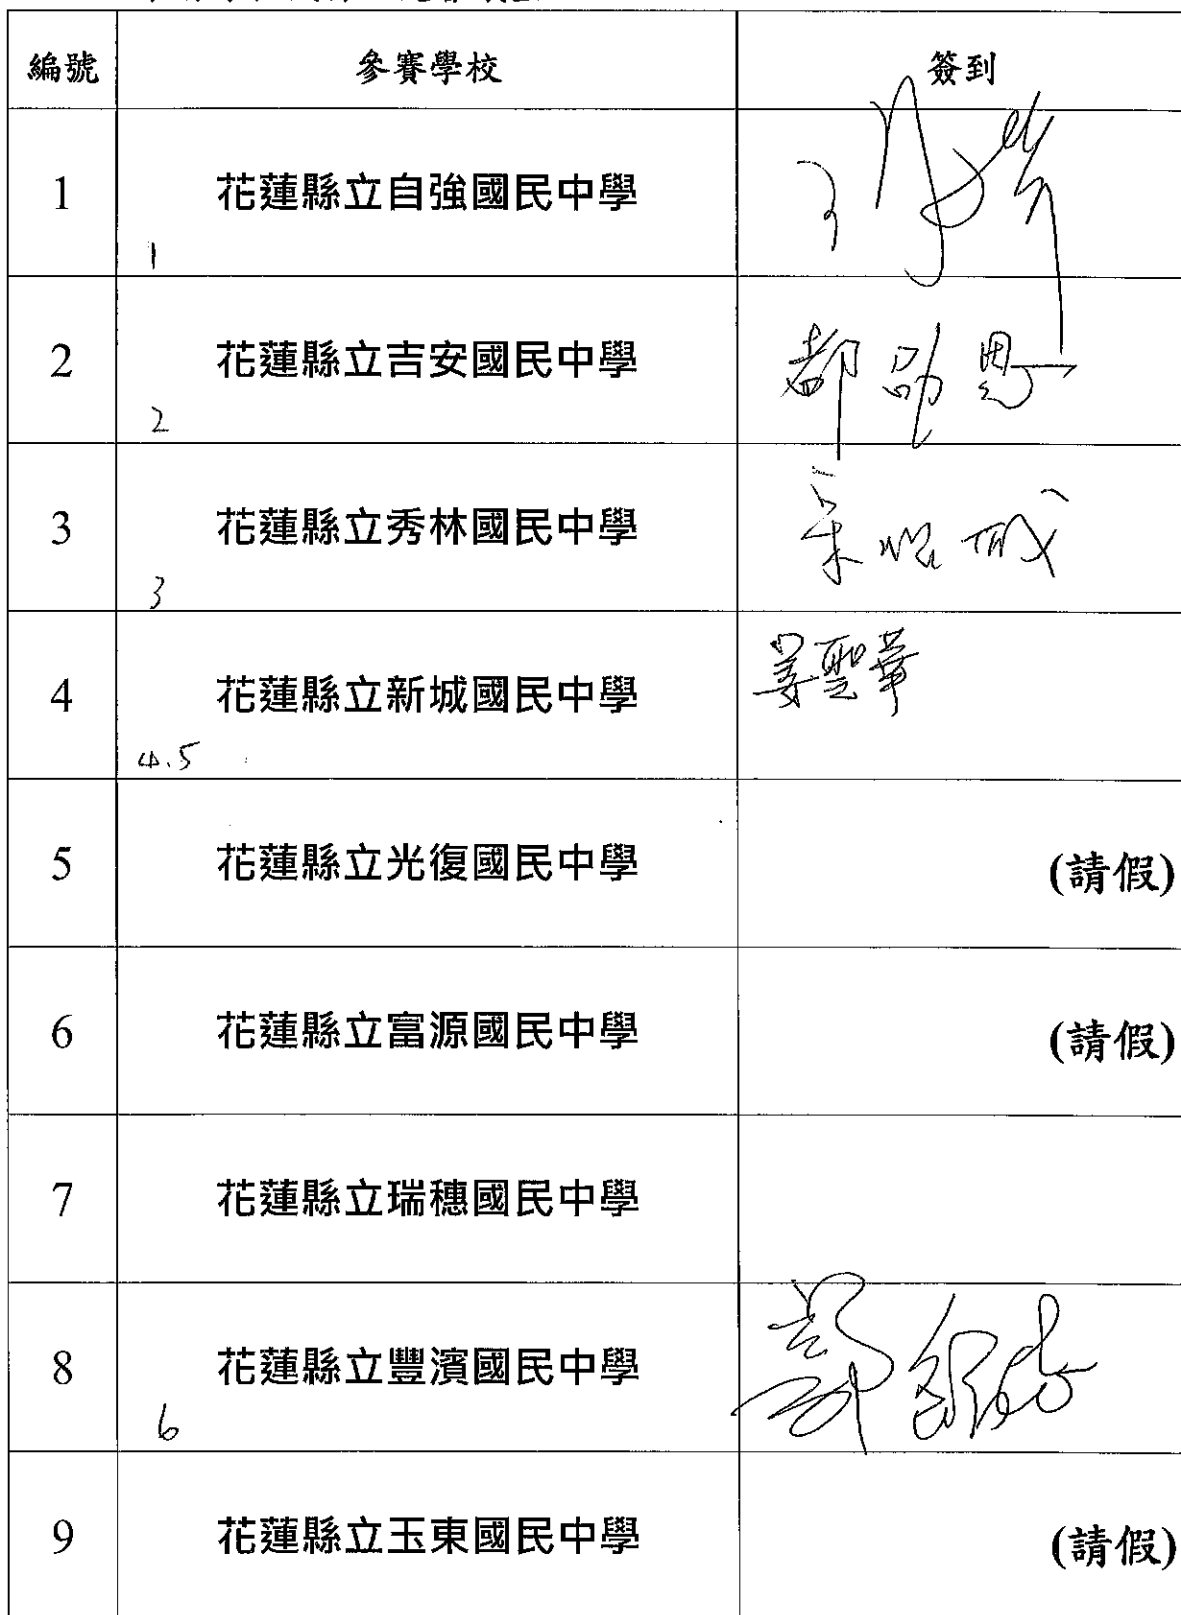 編號 參賽學校 簽到
1 花蓮縣立自強國民中學
1
2 花蓮縣立吉安國民中學
2
3 花蓮縣立秀林國民中學
3
4 花蓮縣立新城國民中學 姜聖華
4.5
5 花蓮縣立光復國民中學 (請假)
6 花蓮縣立富源國民中學 (請假)
7 花蓮縣立瑞穗國民中學
8 花蓮縣立豐濱國民中學
6
9 花蓮縣立玉東國民中學 (請假)